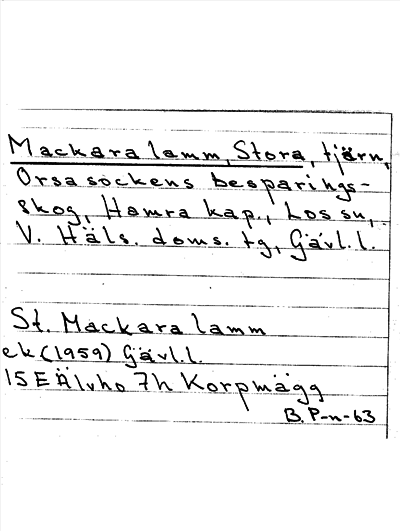 Mackaralamm, Stora, tjärn,
Orsa sockens besparings-
skog, Hamra kap., Los sn,
V. Häls. doms. tg, Gävl.l.
St. Mackaralamm
ek (1959) Gävl.l.
15E Älvho 7h Korpmägg
B. P-n-63